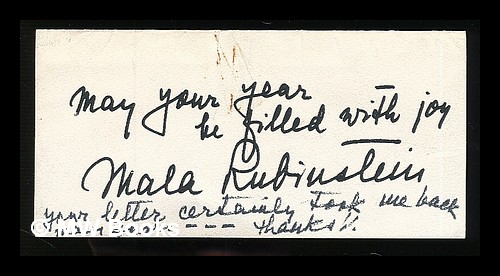 May your year
be filled with joy
Mala Rubinstein
your letter certainly took me back
--- thanks!
Books